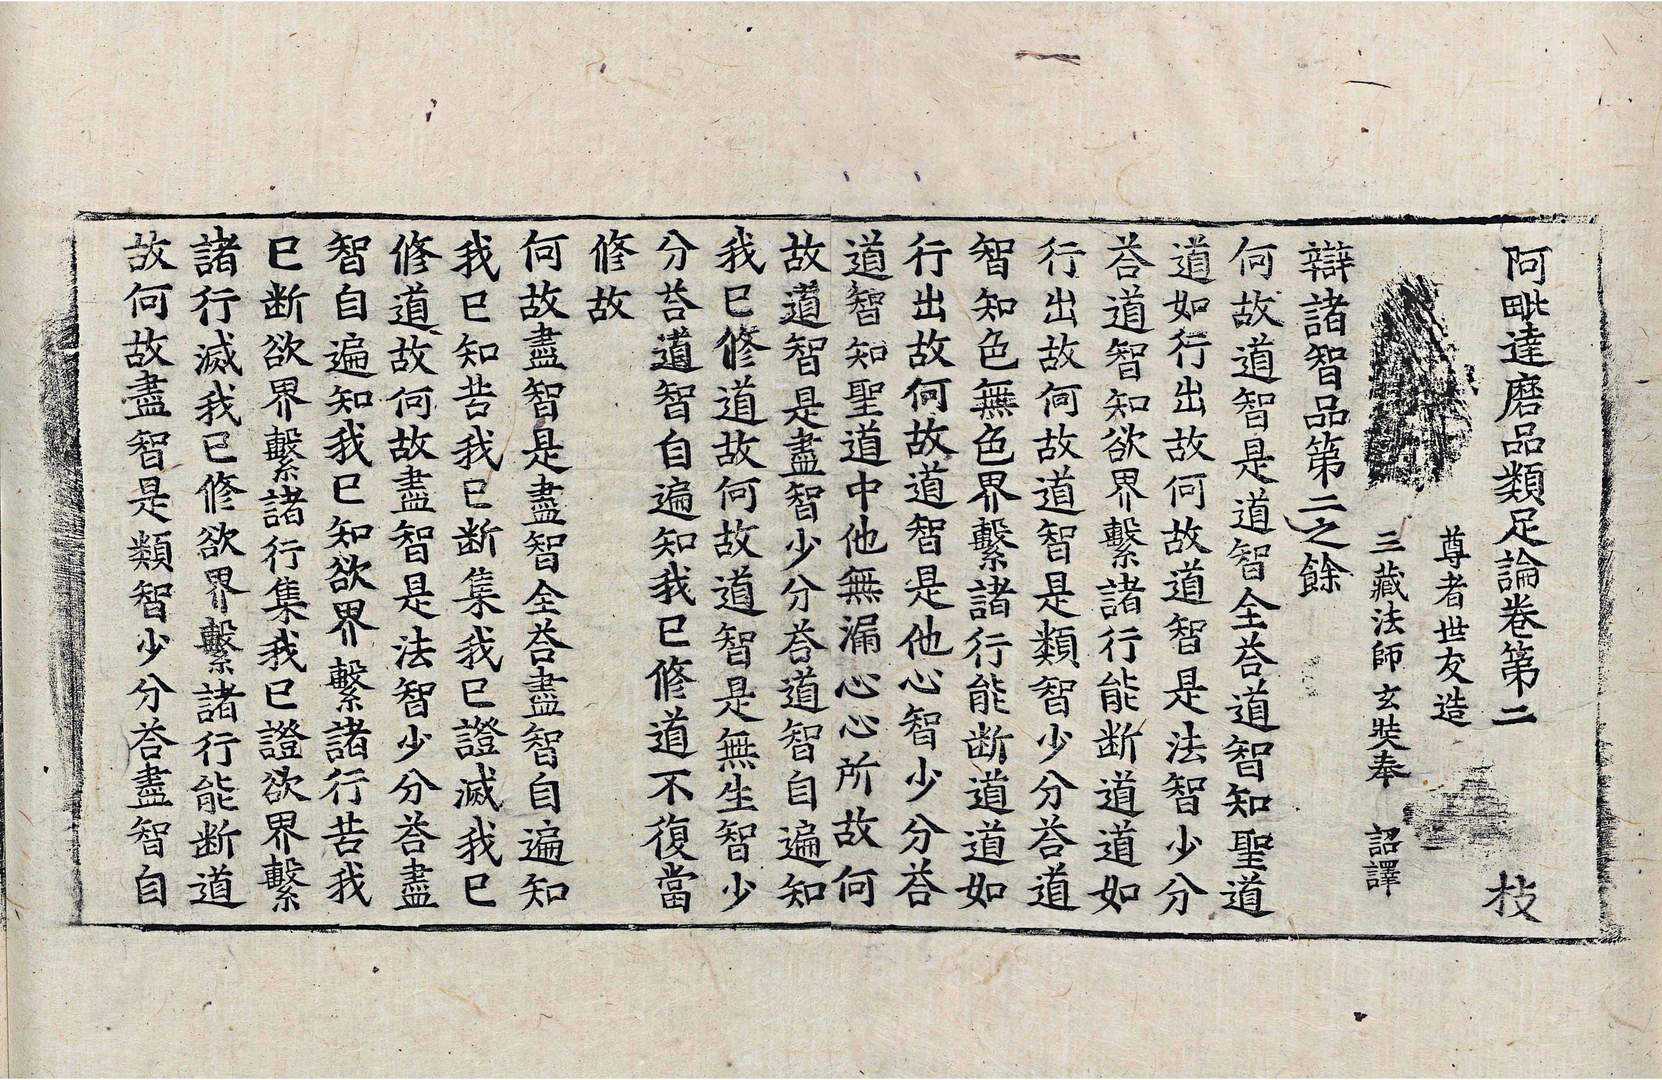 阿毗達磨品類足論卷第二 枝
尊者世友造
三藏法師玄奘奉 詔譯
辯諸智品第二之餘
何故道智是道智全荅道智知聖道
道如行出故何故道智是法智少分
荅道智知欲界繫諸行能断道道如
行出故何故道智是類智少分荅道
智知色無色界繫諸行能断道道如
行出故何故道智是他心智少分荅
道智知聖道中他無漏心心所故何
故道智是盡智少分荅道智自遍知
我已修道故何故道智是無生智少
分荅道智自遍知我已修道不復當
修故
何故盡智是盡智全荅盡智自遍知
我已知苦我已断集我已證滅我已
修道故何故盡智是法智少分荅盡
智自遍知我已知欲界繫諸行苦我
已断欲界繫諸行集我已證欲界繫
諸行滅我已修欲界繫諸行能断道
故何故盡智是類智少分荅盡智自